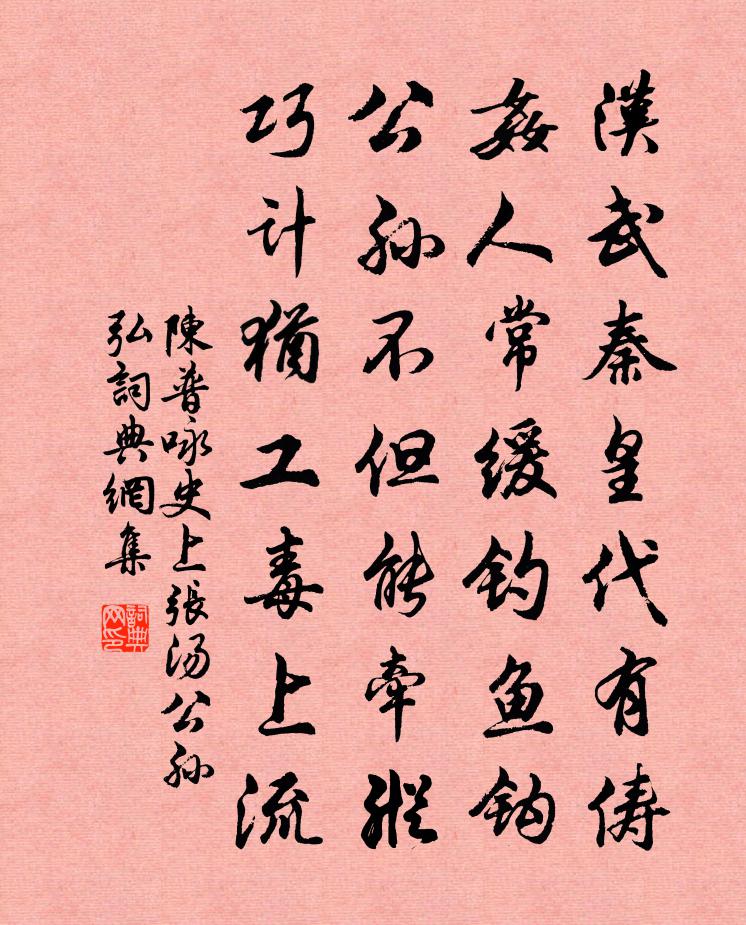 漢武秦皇代有俦
姦人常缓钓鱼钩
公孙不但能牵縱
巧计猶工毒上流
陳普咏史上張汤公孙
弘詞典網集
詞典网印